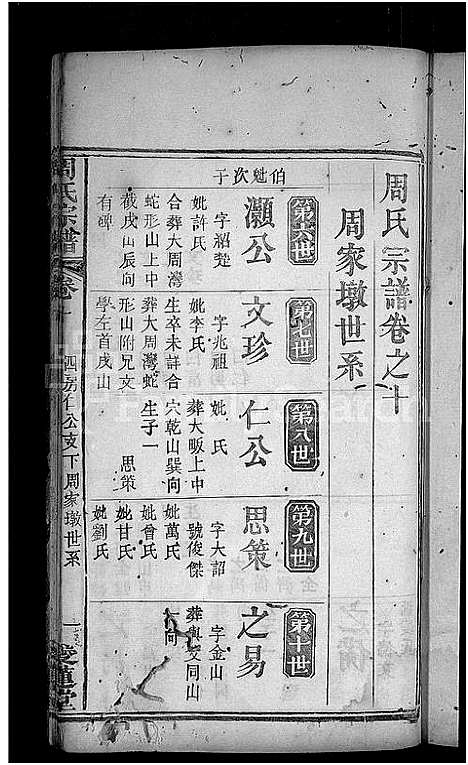 周氏宗譜卷之十
周家墩世系
第六世
伯魁次子
灝公
字紹楚
妣許氏
合葬大周灣
蛇形山上中
截戌山辰向
有碑
第七世
文珍
字兆祖
妣李氏
生卒未詳合
葬大周灣蛇
形山附兄文
學左首戌山
第八世
仁公
妣 氏
葬大畈上中
穴乾山巽向
生子一
思策
第九世
思策
字大詔
號俊傑
妣萬氏
妣曾氏
妣甘氏
妣劉氏
第十世
之易
字金山
葬與父同山
向
周氏宗譜
卷十
四房仁公支下周家墩世系
一
愛蓮堂